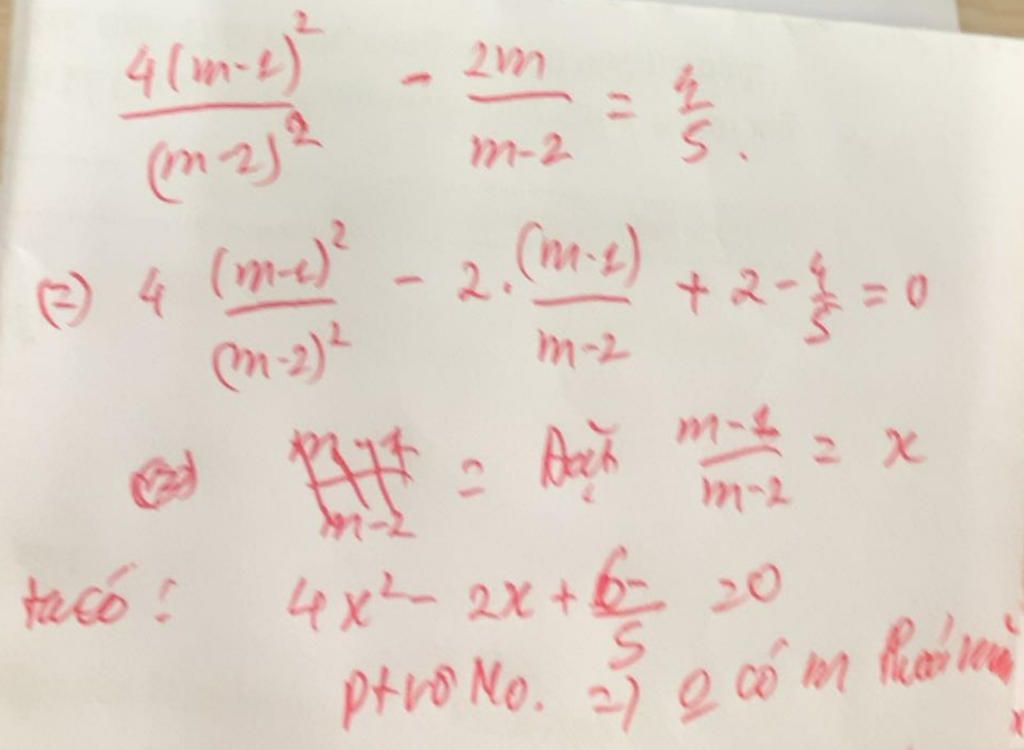 4(m-1)²/(m-2)² - 2m/(m-2) = 4/5.
(=) 4 (m-1)²/(m-2)² - 2.(m-1)/(m-2) + 2 - 4/5 = 0
= Đặt (m-1)/(m-2) = x
ta có: 4x² - 2x + 6/5 = 0
pt vô No. => có m